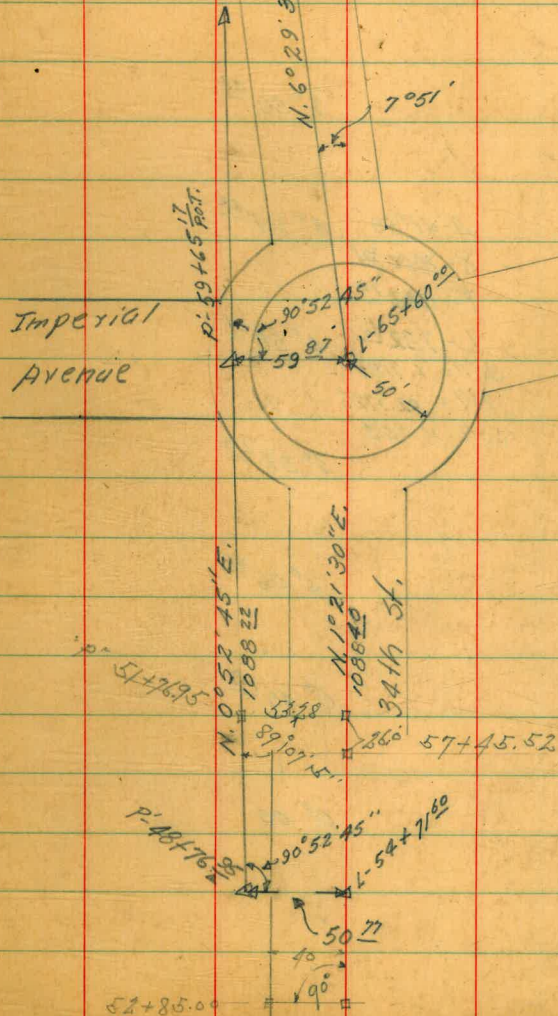 N. 6° 29' 3
7° 51'
P'-59+65 17 P.O.T.
90° 52' 45"
Imperial
Avenue
59 87'
L-65+60 00
50'
N. 0° 52' 45" E.
1088 22
N. 1° 21' 30" E.
1088 40
34th St.
"P"
51+76.95
53.28
89° 07' 15"
26.0
57+45.52
P'-48+76
90° 52' 45"
L-54+71 60
50 77
40
90°
52+85.00